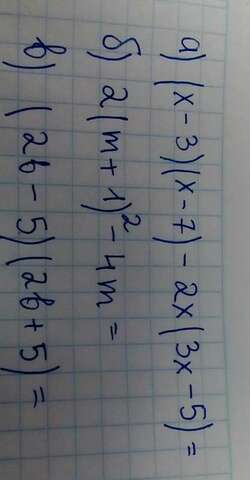 а) (x-3)(x-7)-2x(3x-5)=
б) 2(m+1)²-4m=
в) (2b-5)(2b+5)=